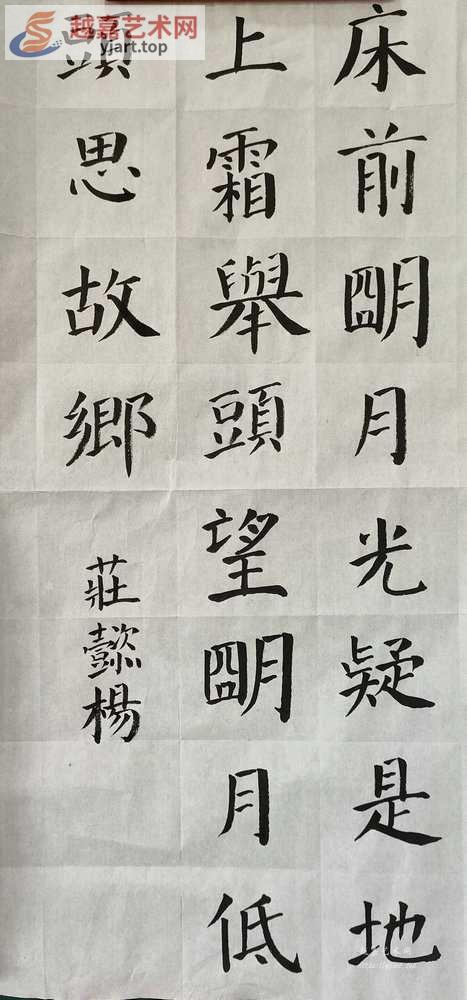 床前朙月光疑是地
上霜舉頭望朙月低
頭思故鄉
莊懿楊
越嘉艺术网
yjart.net